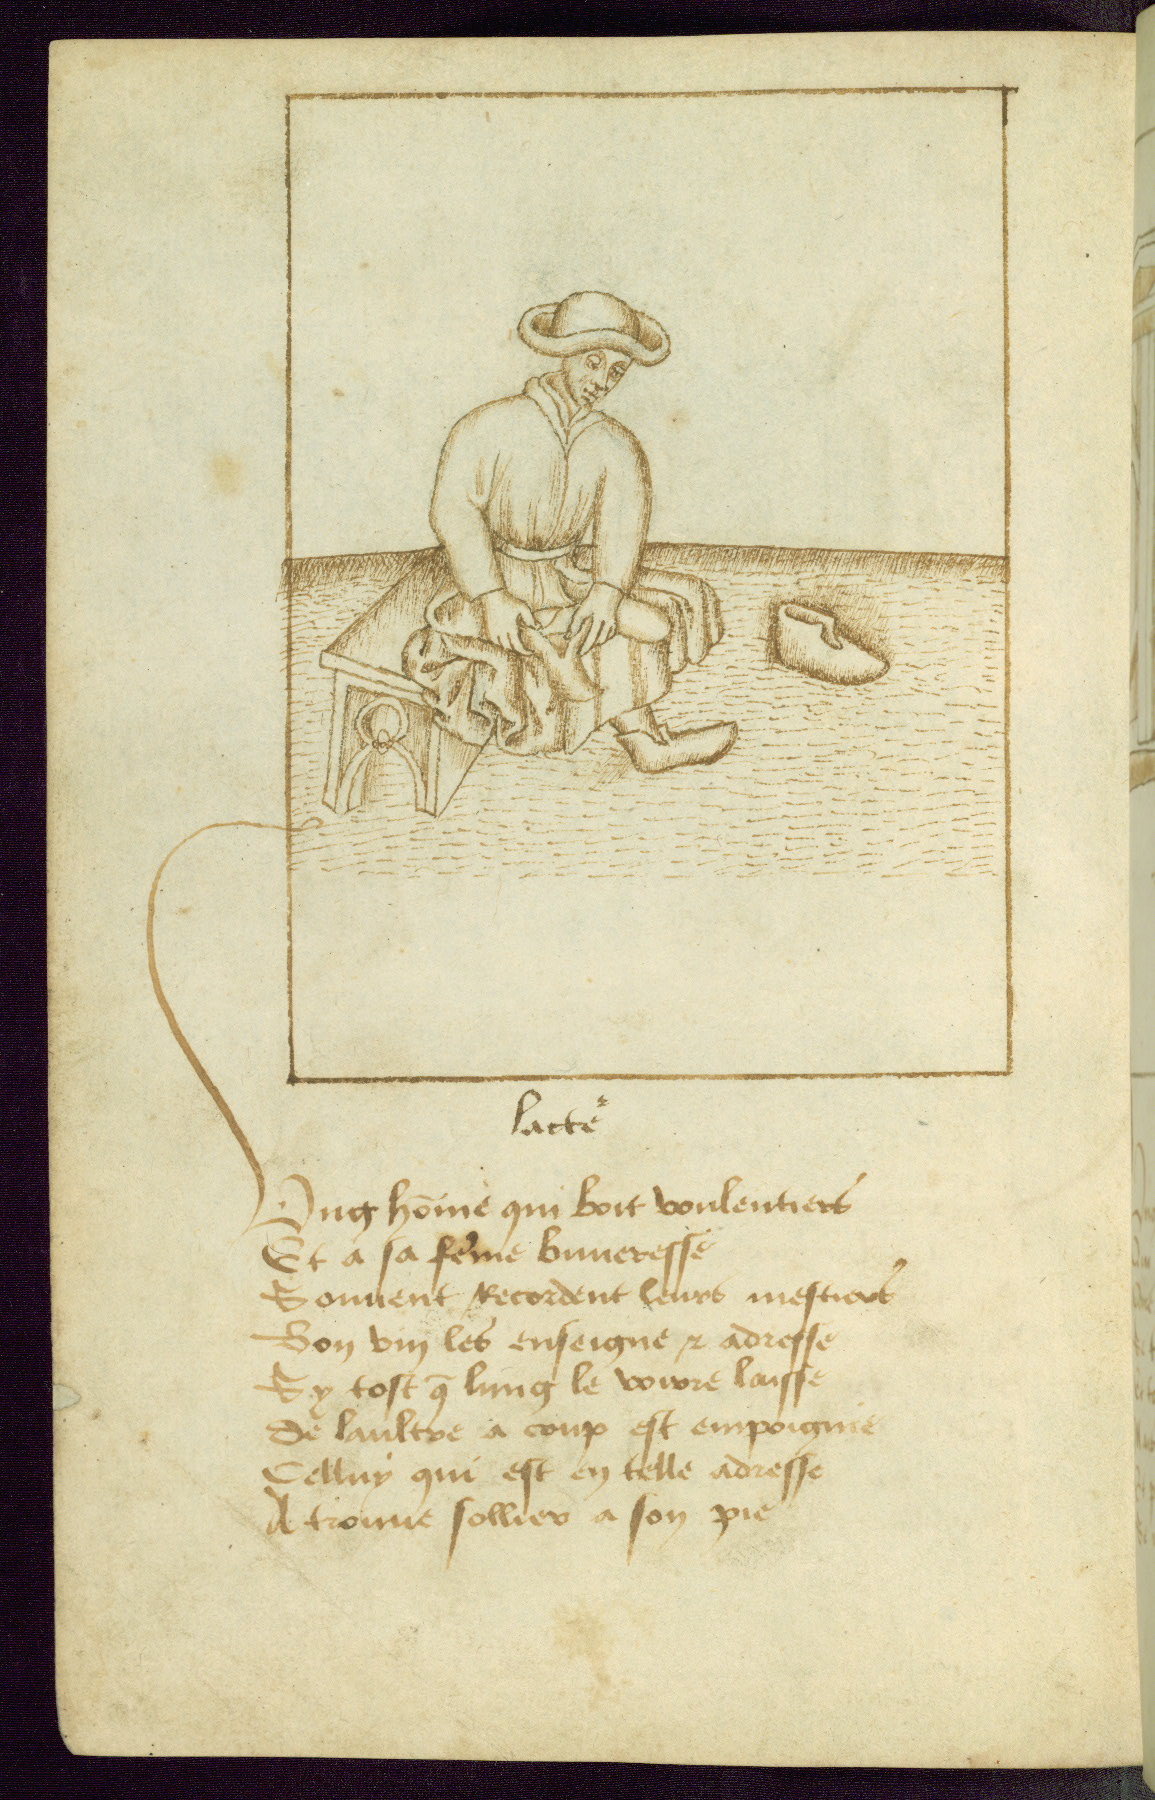 lacte᷑
Ung hōme qui boit voulentiers
Et a sa feme buueresse
Souuent Recordent leurs mestiers
Bon vin les enseigne ⁊ adresse
Sy tost q̄ lung le voirre laisse
De laultre a coup est empoignie
Celluy qui est en telle adresse
A trouue sollier a son pie